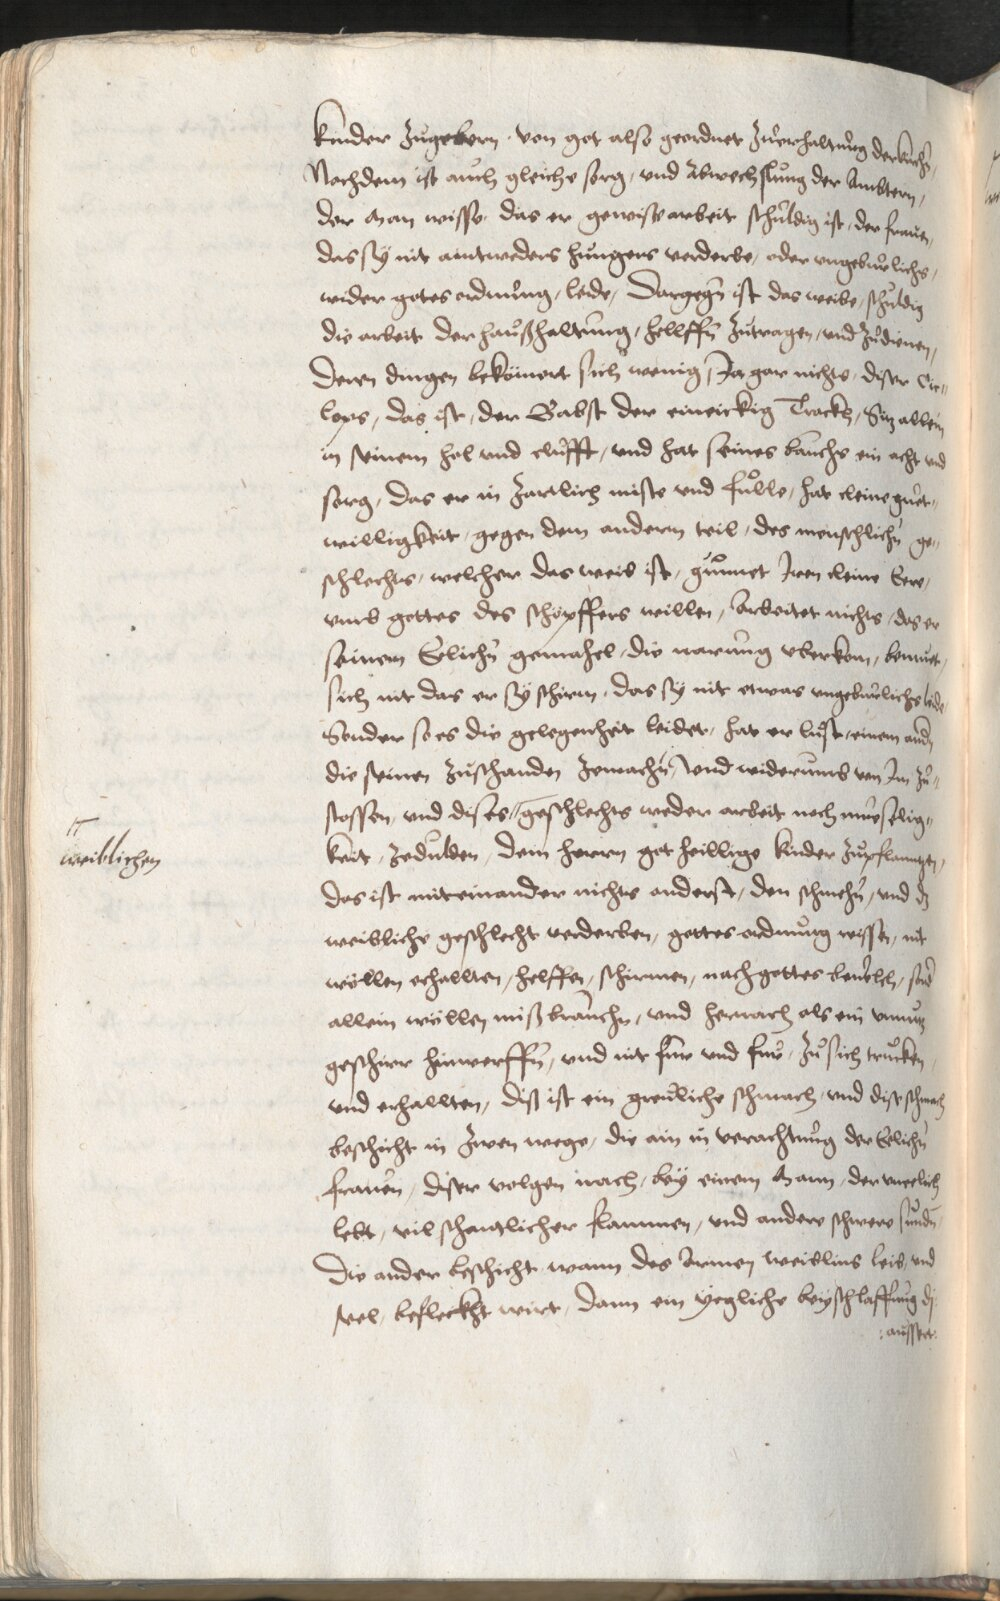 kinder zugebern, von got also geordnet zuerhaltung der kirchn,
Nachdem ist auch gleiche sorg, und Abwechslung der Ambtern,
der Man wisse, das er gewise arbeit schuldig ist, der frauen,
das sy nit antweders hungers verderbe, oder ungeburlichs,
wider gotes ordnung, leide, Dargegn ist das weibe, schuldig
die arbeit der haußhaltung, hellffn zutragen, und zudienen,
Deren dingen bekömert sich wenig, Ja gar nichts, diser Cic=
lops, das ist, der Babst der eineickig Trackh, Sitz allein
in seinem hol und clufft, und hat seines bauchs ein acht und
sorg, das er in zartlich miste und fulle, hat cleine guet=
willigkeit, gegen dem andern teil, des menschlichn ge=
schlechts, welcher das weib ist, gunnet Iren cleine Eere,
umb gottes des schöpffers willen, Arbeitet nichts, das er
seinem Eelichn gemahel, die narung uberkom, bemuet,
sich nit das er sy schirm, das sy nit etwas ungeburlichs leide
Sonder so es die gelegenheit leidet, hat er lust, einem andn
die seinen zuschanden zemachn, und widerumb von Im zu=
stossen, und dises geschlechts weder arbeit noch mueselig=
keit, zedulden, dem herrn got heillige kinder zupflanntzen,
weiblichen
das ist miteinander nichts anderst, den schmehn, und dz
weibliche geschlecht verderben, gottes ordnung wissen, nit
wöllen erhallten, helffen, schirmen, nach gottes bevelch, sond
allein wöllen mißbrauchn, und hernach als ein unnutz
geschirr hinwerffn, und nit fur und fur, zu sich trucken,
und erhallten, diß ist ein greuliche schmach, und dise schmach
beschicht in zwen wege, die ain in verachtung der Eelichn
frauen, diser volgen nach, bey einem Mann, der uneelich
lebt, vil schantlicher flammen, und andere schwere sundn,
Die ander beschicht, wann des Armen weiblins leib, und
sel, befleckht wirt, dann ein yegliche beyschlaffung dz
: ausser: